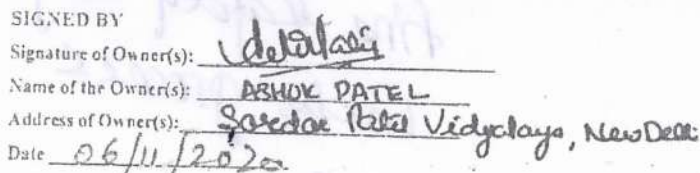 SIGNED BY
Signature of Owner(s):
Name of the Owner(s): ASHOK PATEL
Address of Owner(s): Sardar Patel Vidyalaya, New Delhi
Date 06/11/2020